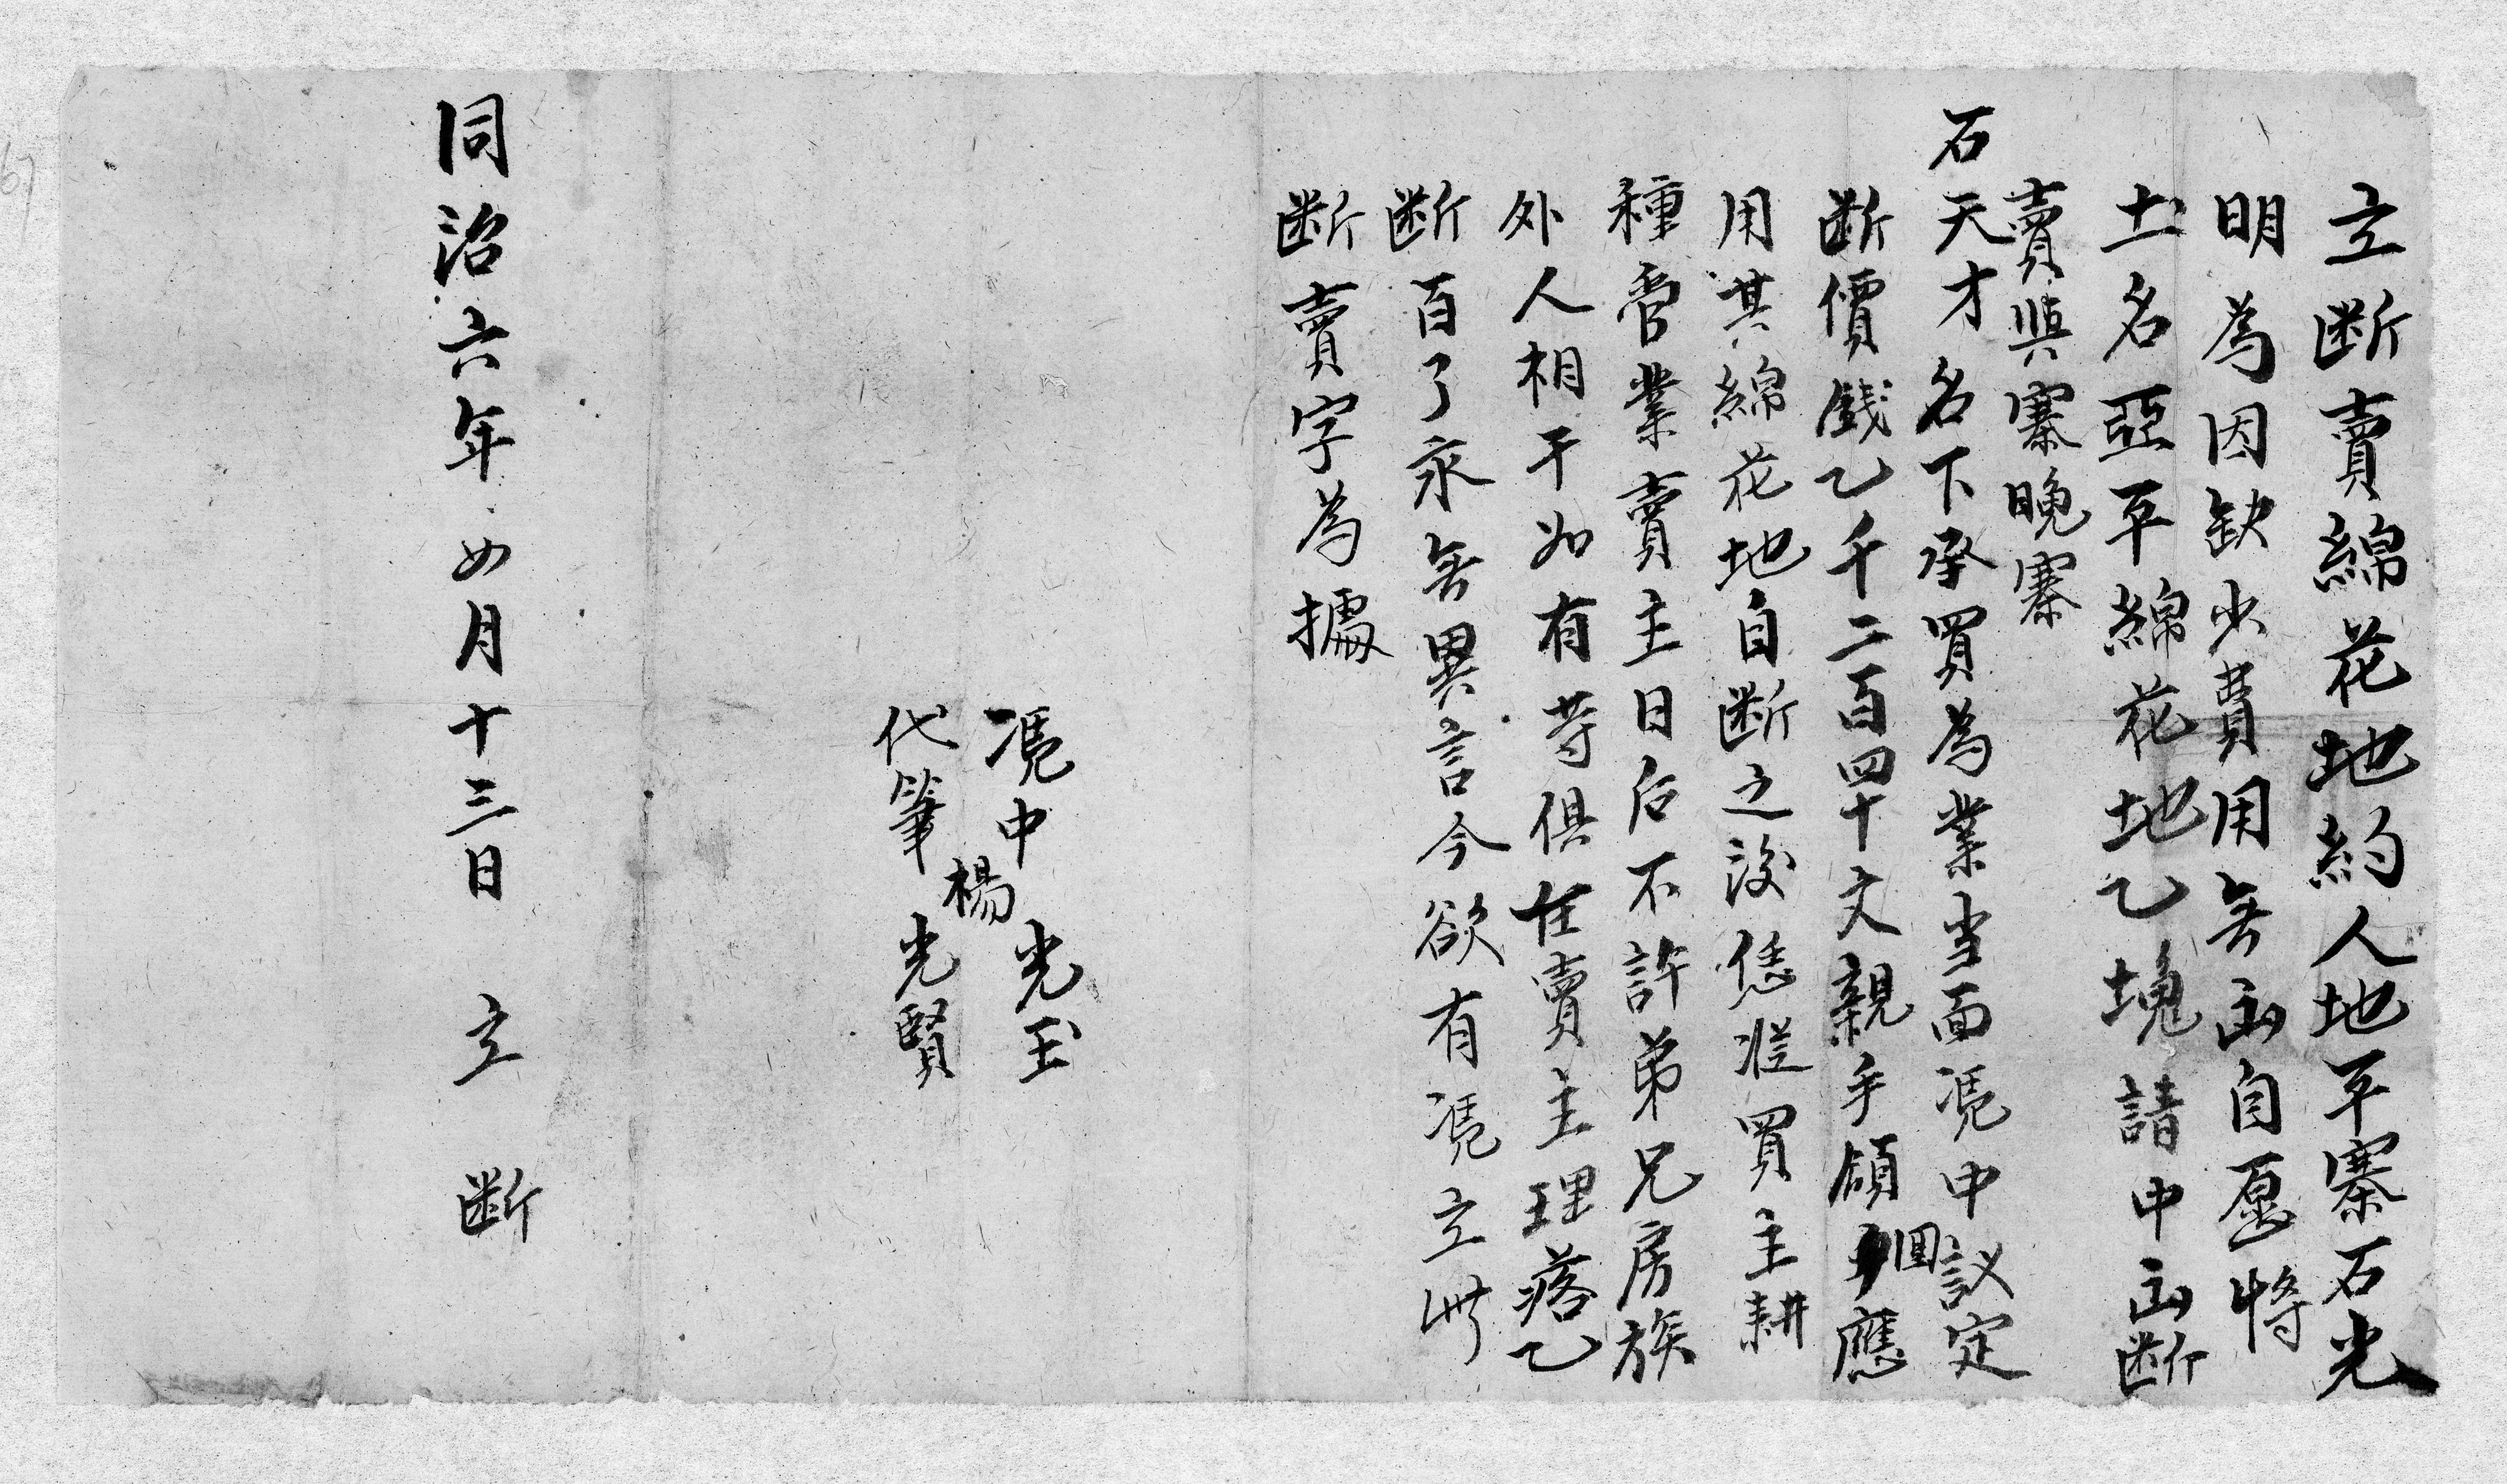 立断賣綿花地約人地平寨石光
明為因缺少費用無出自愿将
土名亞平綿花地乙塊請中出断
賣與寨晚寨
石天才名下承買為業当面凴中議定
断價錢乙千二百四十文親手領回應
用其綿花地自断之後恁凴買主耕
種管業賣主日后不許弟兄房族
外人相干如有等俱在賣主理落乙
断百了永無異言今欲有凴立此
断賣字為據
凴中 楊光玉
代筆 光賢
同治六年四月十三日 立 断